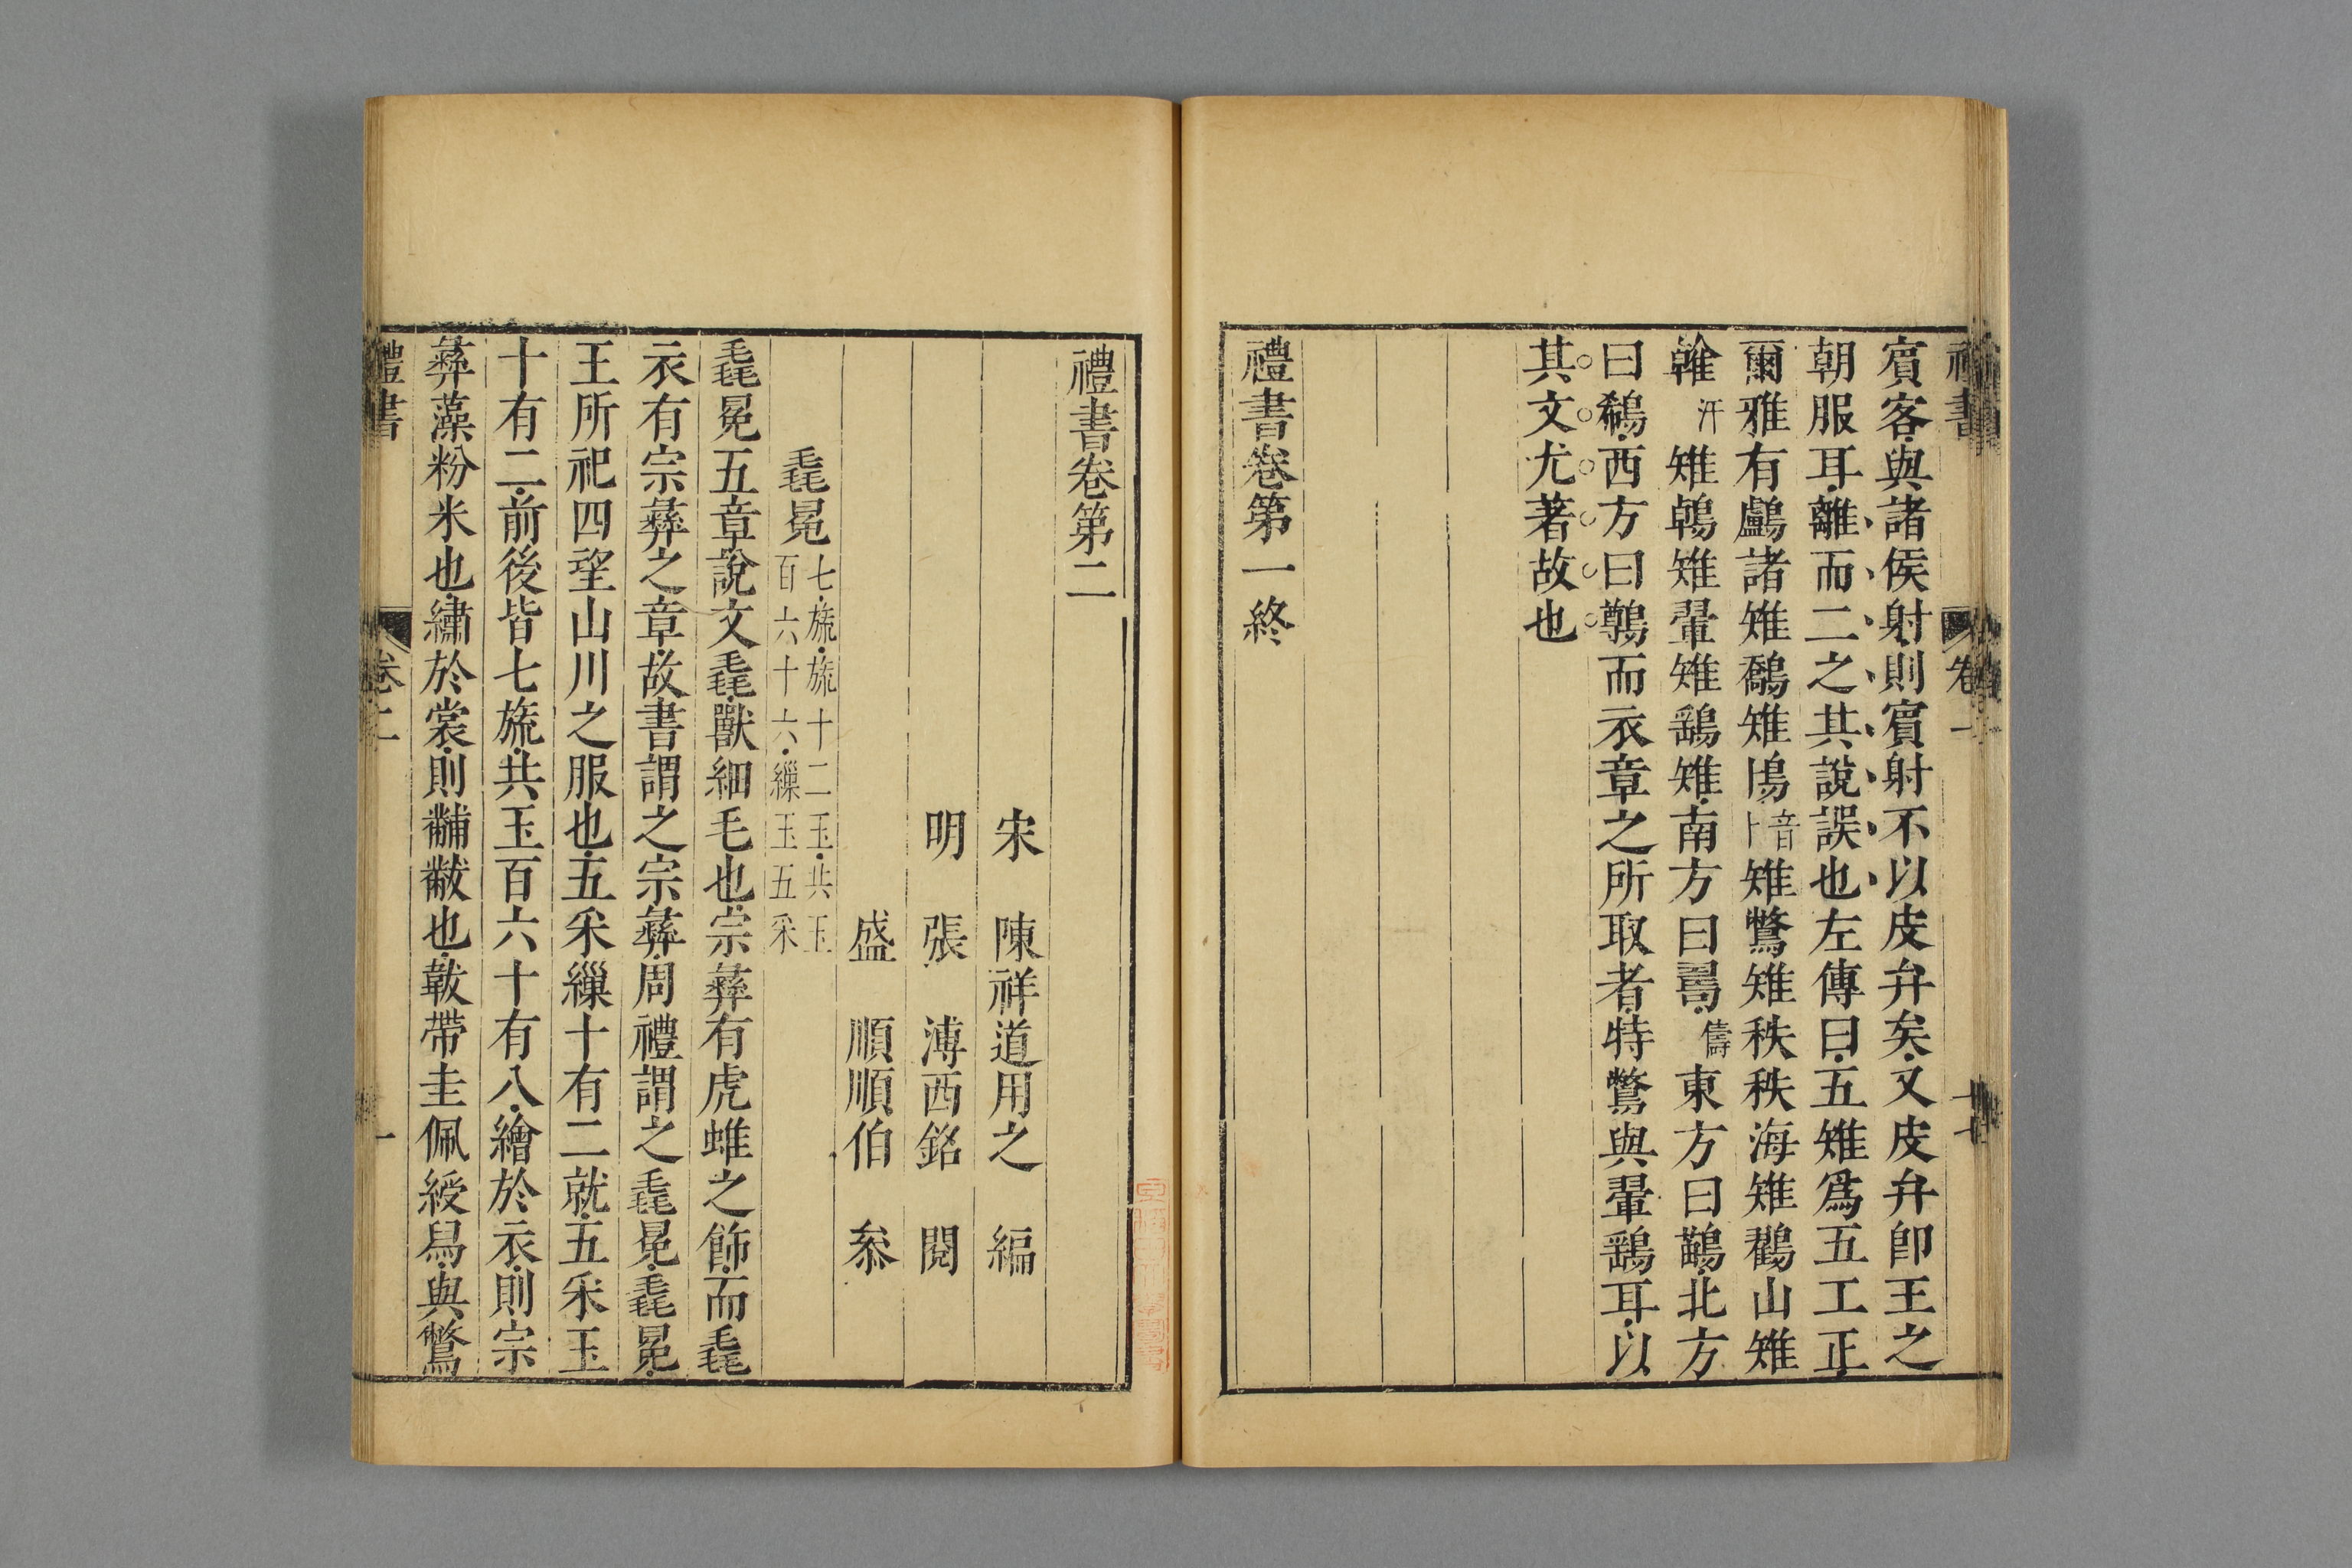 賔客與諸侯射則賔射不以皮弁矣又皮弁卽王之
朝服耳離而二之其說誤也左傳曰五雉爲五工正
爾雅有鸕諸雉鷮雉鳪音卜雉鷩雉秩秩海雉鸐山雉
雗汗雉鵫雉翬雉鷂雉南方曰𠷎儔東方曰鶅北方
曰鵗西方曰鷷而衣章之所取者特鷩與翬鷂耳以
其文尤著故也
禮書卷第一終
禮書 卷一
禮書卷第二
宋 陳祥道用之 編
明 張 溥西銘 閱
盛 順順伯 叅
毳冕七旒旒十二玉共玉百六十六繅玉五采
毳冕五章說文毳獸細毛也宗彝有虎蜼之飾而毳
衣有宗彝之章故書謂之宗彝周禮謂之毳冕毳冕
王所祀四望山川之服也五采繅十有二就五采玉
十有二前後皆七旒共玉百六十有八繪於衣則宗
彝藻粉米也繡於裳則黼黻也韍帶圭佩綬舄與鷩
禮書 卷二 一